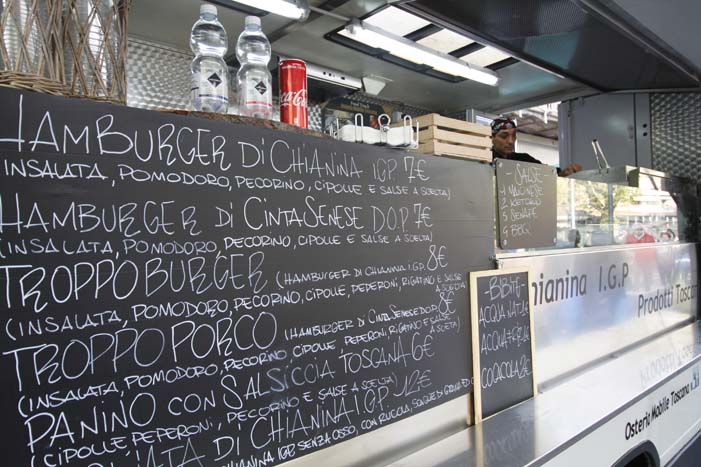 HAMBURGER Di CHIANINA I.G.P. 7€
INSALATA, POMODORO, PECORINO, CIPOLLE E SALSE A SCELTA)
HAMBURGER di CINTA SENESE D.O.P. 7€
(INSALATA, POMODORO, PECORINO, CIPOLLE E SALSE A SCELTA)
TROPPO BURGER (HAMBURGER DI CHIANINA I.G.P. 8€
(INSALATA, POMODORO, PECORINO, CIPOLLE, PEPERONI, RIGATINO E SALSE A SCELTA)
TROPPO PORCO (HAMBURGER DI CINTA SENESE D.O.P. 8€
(INSALATA, POMODORO, PECORINO, CIPOLLE PEPERONI, RIGATINO E SALSE A SCELTA)
PANINO CON SALSICCIA TOSCANA 6€
(CIPOLLE, PEPERONI, PECORINO E SALSE A SCELTA)
DI CHIANINA I.G.P. 12€
CHIANINA IGP SENZA OSSO CON RUCOLA,
Coca-Cola
- SALSE -
1 MAIONESE
2 KETCHUP
3 SENAPE
4 BBQ
- BIBITE -
ACQUA NAT 1€
ACQUA FRIZ 1€
COCACOLA 2€
hianina I.G.P
Prodotti Toscan
Osteria Mobile Toscana